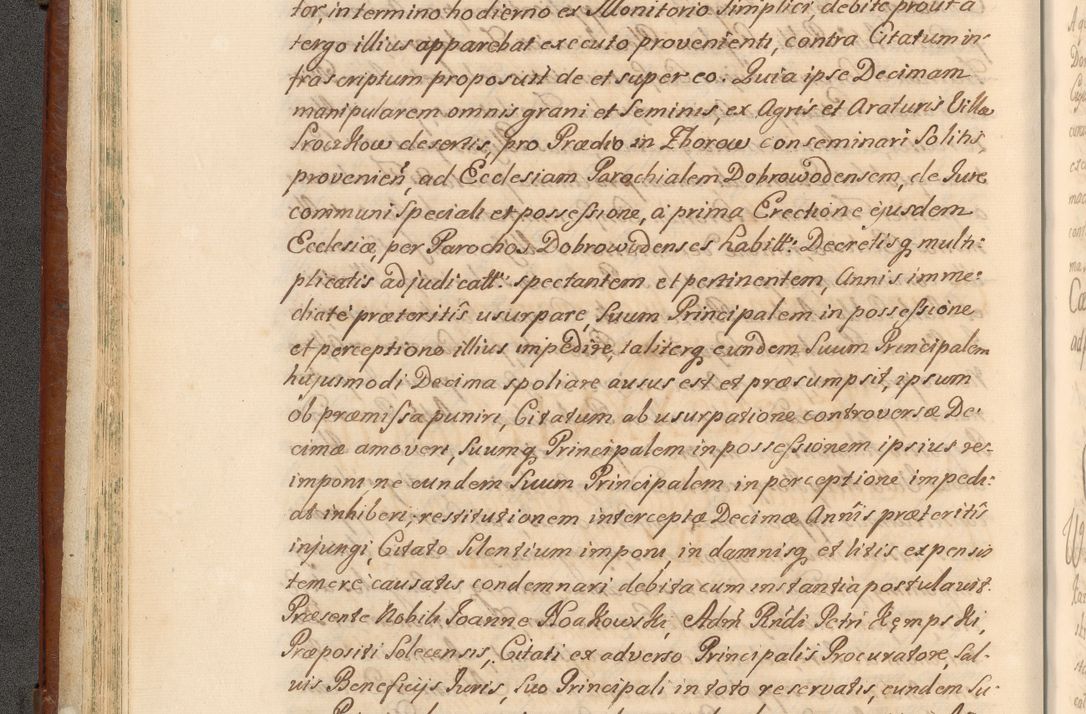 tor, in termino hodierno ex Monitorio Simplici, debite prout a
tergo illius apparebat executo provenienti, contra Citatum in-
frascriptum proposuit de et super eo: Quia ipse Decimam
manipularem omnis grani et Seminis, ex Agris et Araturis Villæ
Sroczkow desertis, pro Prædio in Zborow conseminari Solitis
provenien, ad Ecclesiam Parochialem Dobrowodensem, de Jure
communi Speciali et possessione, à prima Erectione ejusdem
Ecclesiæ, per Parochos Dobrowodenses habitt: Decretisq multi:
plicatis adjudicatt: spectantem et pertinentem, Annis imme:
diatè præteritis usurpare, Suum Principalem in possessione
et perceptione illius impedire, taliterq eundem Suum Principalem
hujusmodi Decima spoliare ausus est et præsumpsit, ipsum
ob præmissa puniri, Citatum ab usurpatione controversæ De:
cimæ amoveri, Suumq Principalem in possessionem ipsius re-
imponi, ne eundem Suum Principalem in perceptione impedi:
at inhiberi, restitutionem interceptæ Decimæ Annis præteritis
injungi, Citato Silentium imponi, in damnisq et litis expensis
temerè causatis condemnari debita cum instantia postulavit.
Præsente Nobili Joanne Koakowski, Adm Rndi Petri Kempski,
Præpositi Solecensis, Citati ex adverso Principalis Procuratore, Sal-
vis Beneficijs Juris, Suo Principali in toto reservatis, eundem Su-